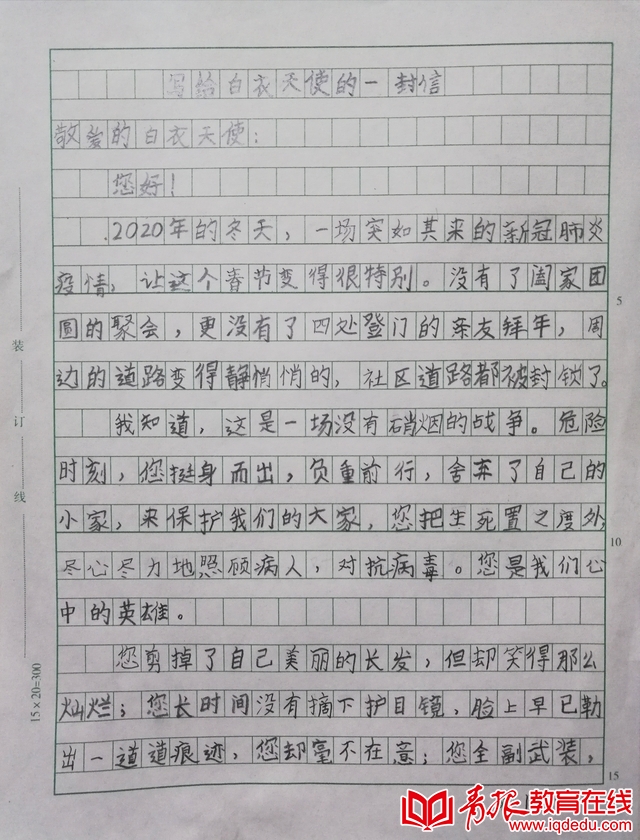 写给白衣天使的一封信
敬爱的白衣天使:
您好!
.2020年的冬天,一场突如其来的新冠肺炎
疫情,让这个春节变得很特别。没有了阖家团
圆的聚会,更没有了四处登门的亲友拜年,周
边的道路变得静悄悄的,社区道路都被封锁了。
我知道,这是一场没有硝烟的战争。危险
时刻,您挺身而出,负重前行,舍弃了自己的
小家,来保护我们的大家,您把生死置之度外,
尽心尽力地照顾病人,对抗病毒。您是我们心
中的英雄。
您剪掉了自己美丽的长发,但却笑得那么
灿烂;您长时间没有摘下护目镜,脸上早已勒
出一道道痕迹,您却毫不在意;您全副武装,
装
订
线
15×20=300
5
10
15
青报教育在线
www.iqdedu.com